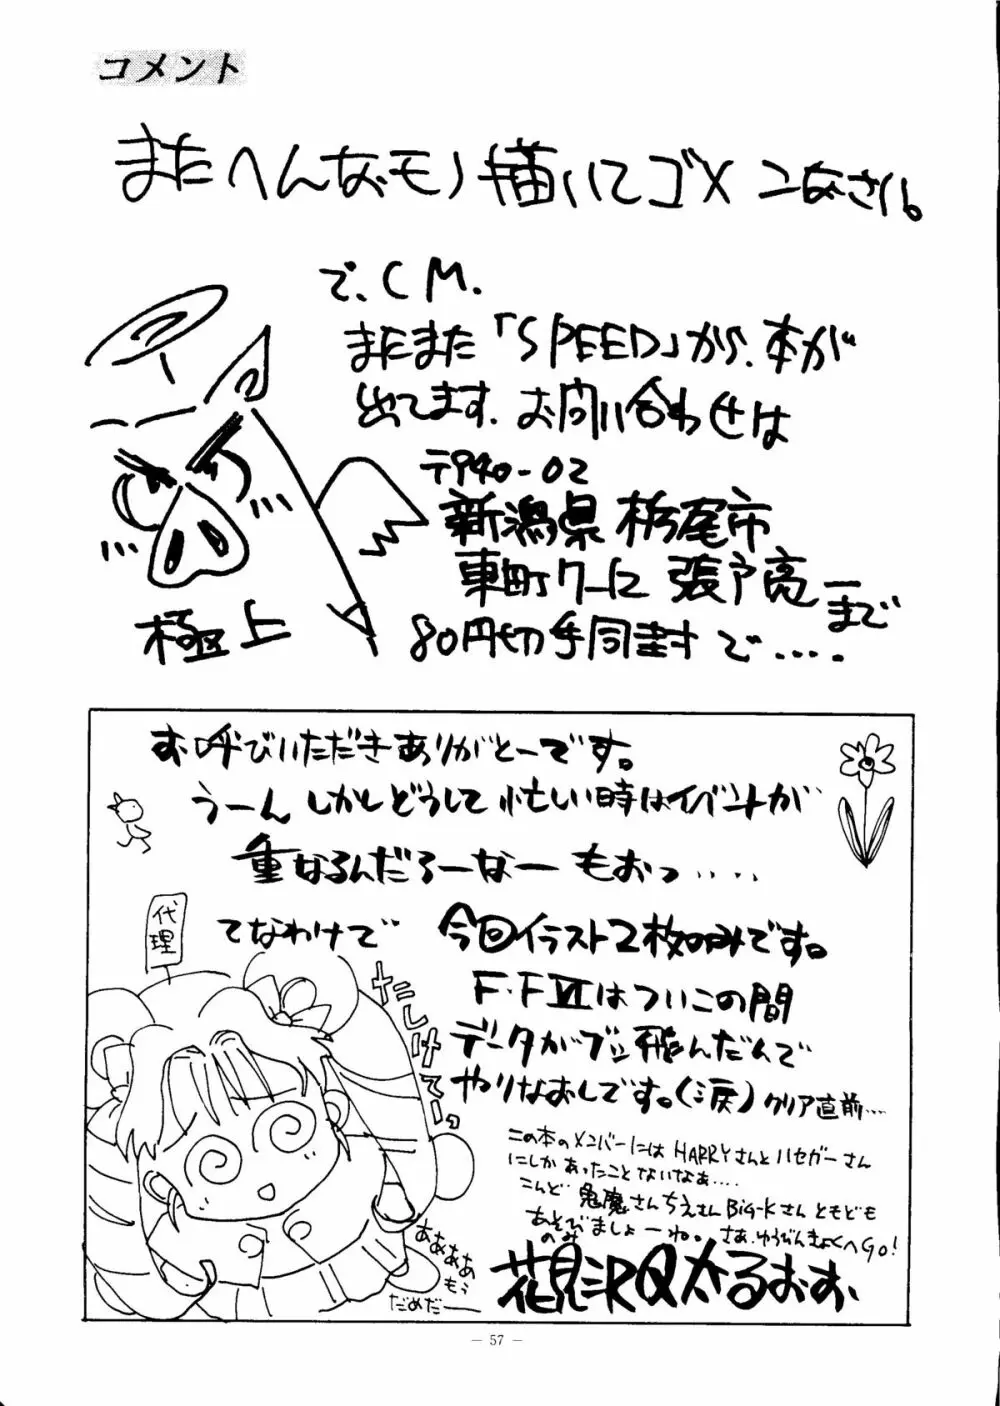 コメント
またへんなモノ描いてゴメンなさい。
で、CM.
またまた「SPEED」から、本が
出てます、お問い合わせは
〒940-02
新潟県 栃尾市
東町7-12 張戸亮一まで
80円切手同封で‥‥
極上
お呼びいただきありがとーです。
うーん しかしどうして忙しい時はイベントが
重なるんだろーなー もおっ‥‥
代理
てなわけで 今回イラスト2枚のみです。
たしけてーっ
F.F Ⅵはついこの間
データがブッ飛んだんで
やりなおしです。(涙) クリア直前‥‥
この本のメンバーには HARRYさんとハセガーさん
にしか あったことないなぁ‥‥
こんど 鬼魔さんちえさんBig-Kさんともども
あそびましょーね。 さあ、ゆうびんきょくへGo!
のみ
ああああ
もぅ
だめだー
花見沢Q太るおすか
— 57 —